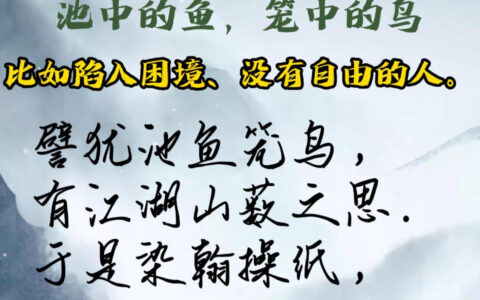 池中的鱼，笼中的鸟
比如陷入困境、没有自由的人。
譬犹池鱼笼鸟，
有江湖山薮之思.
于是染翰操纸，